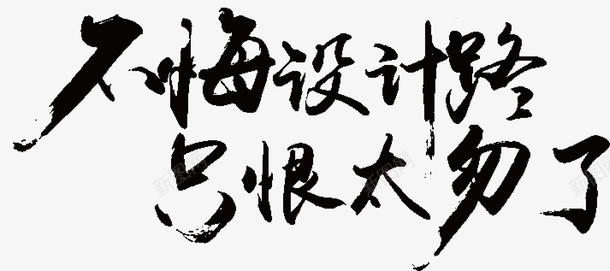 不悔设计路
只恨太匆了